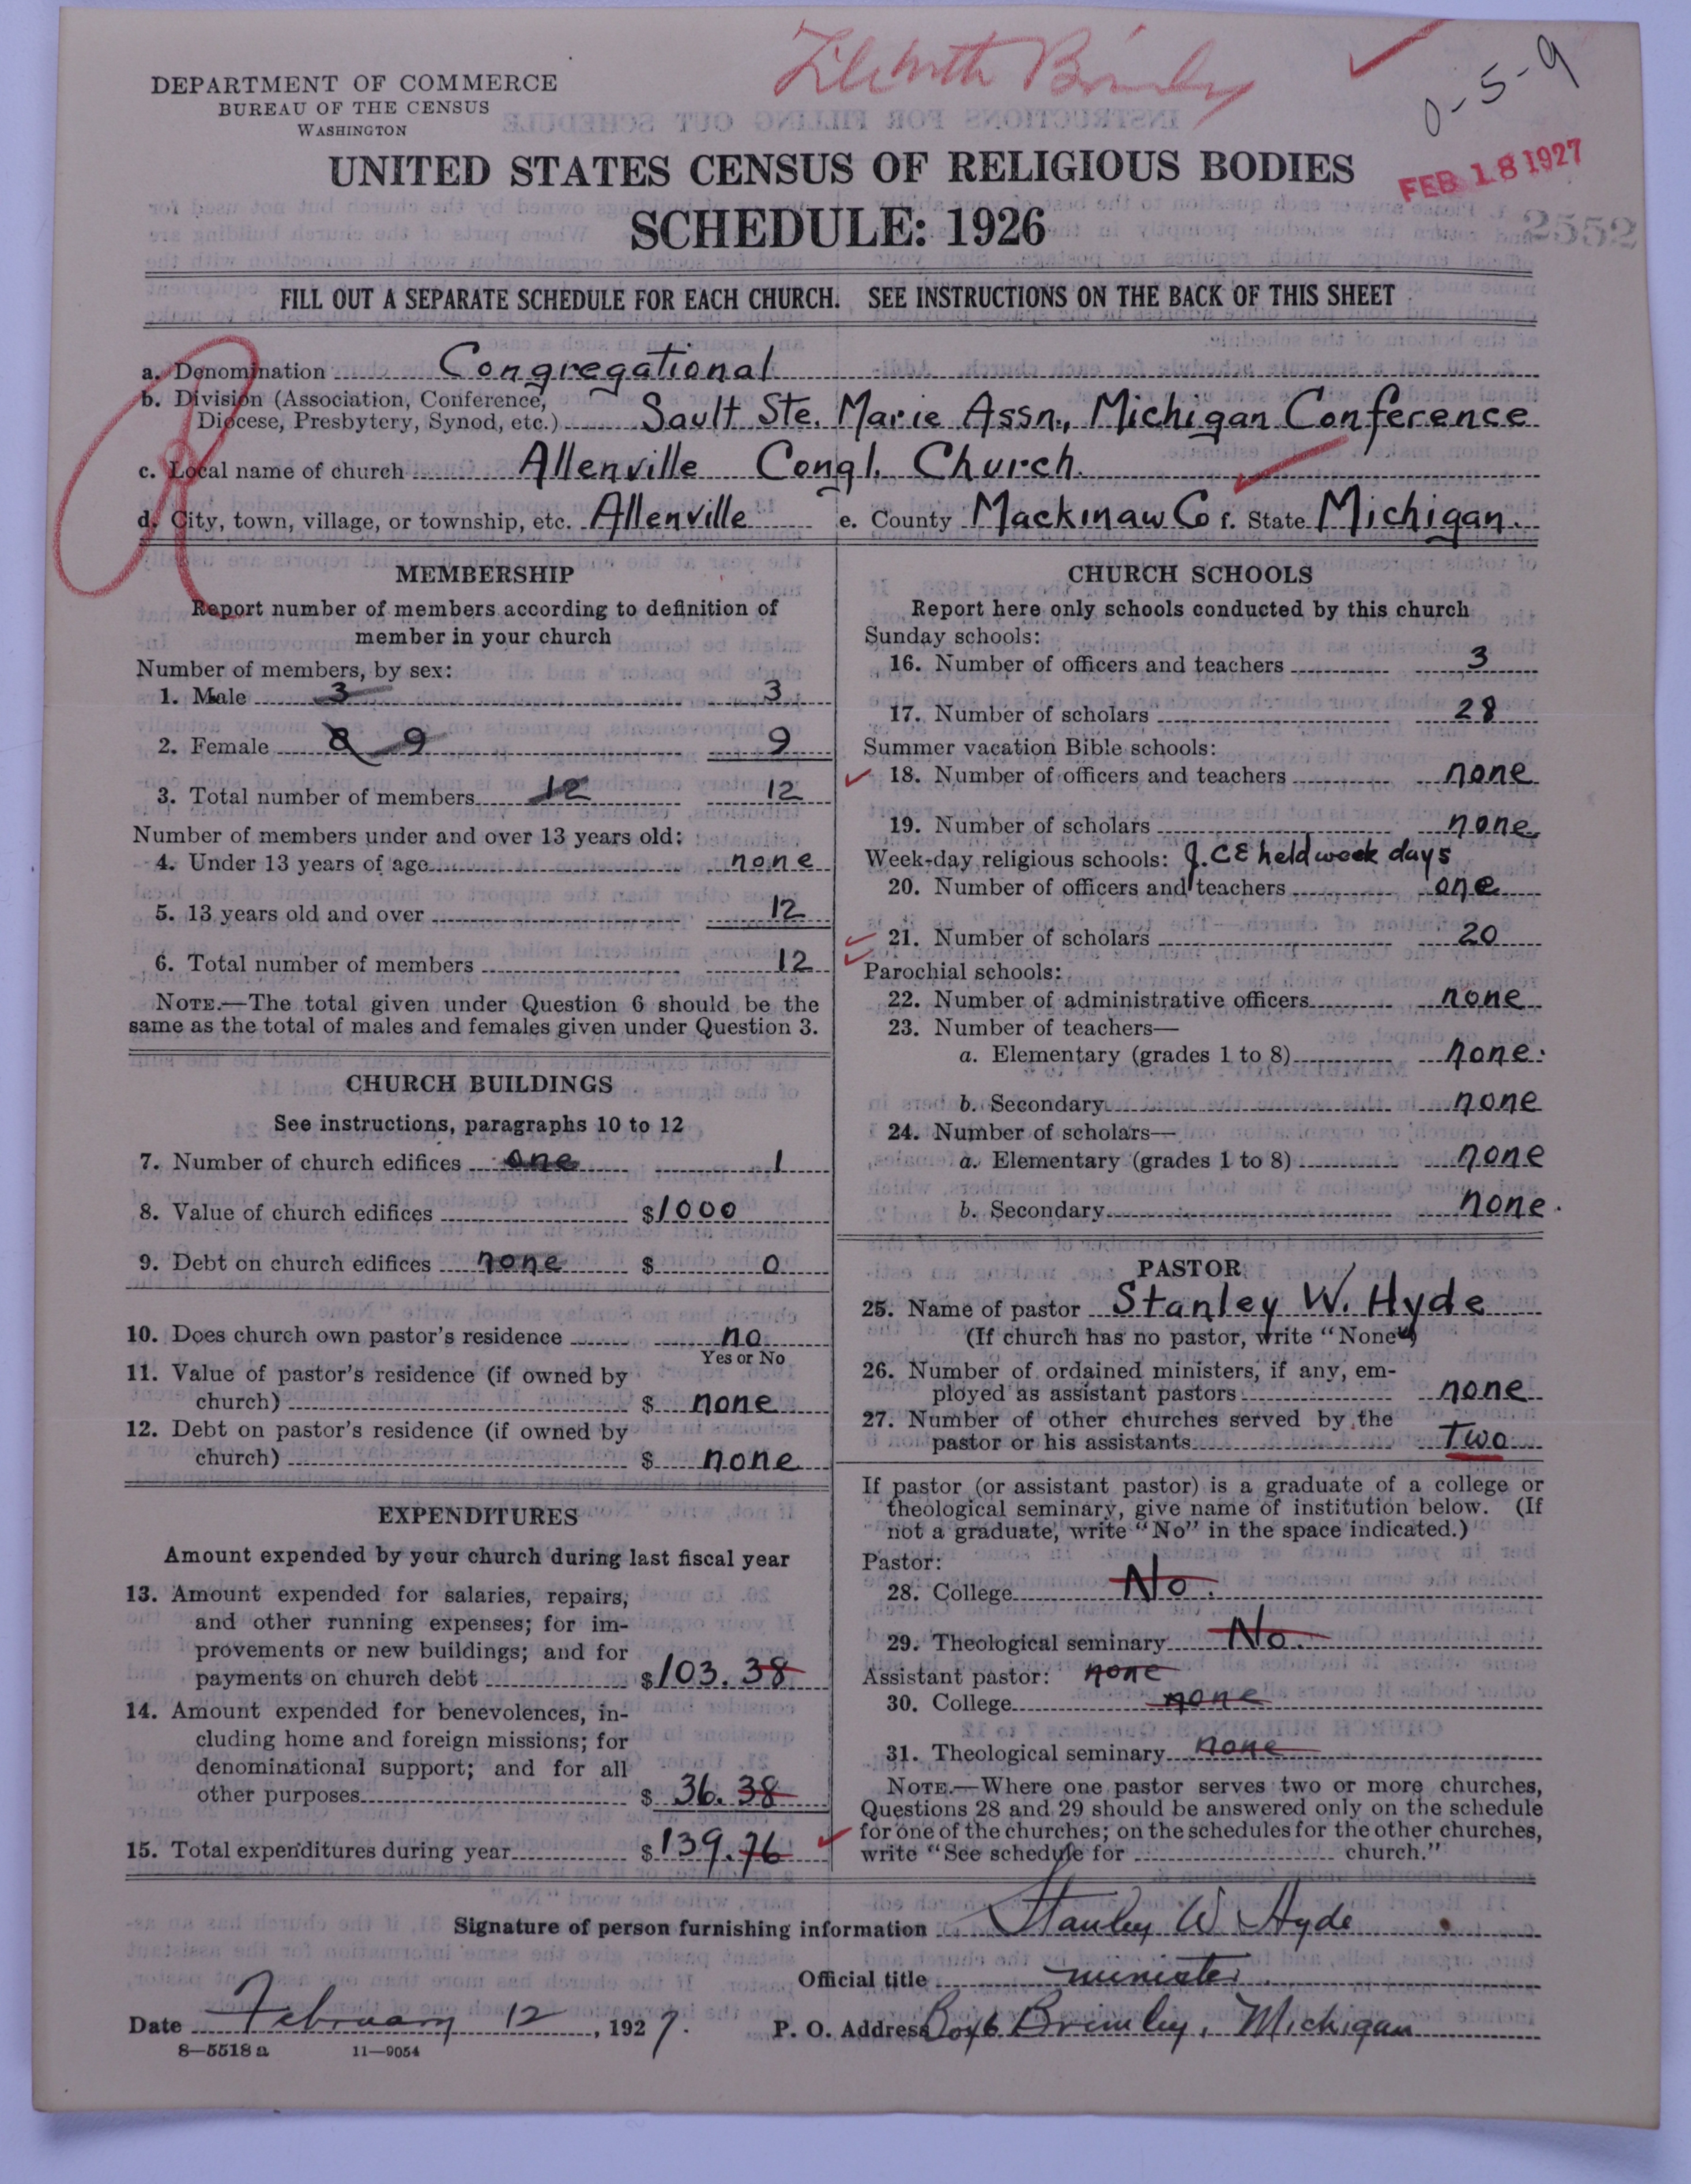 DEPARTMENT OF COMMERCE
BUREAU OF THE CENSUS
WASHINGTON
Brimley
0-5-9
UNITED STATES CENSUS OF RELIGIOUS BODIES
FEB 18 1927
SCHEDULE: 1926
2552
FILL OUT A SEPARATE SCHEDULE FOR EACH CHURCH. SEE INSTRUCTIONS ON THE BACK OF THIS SHEET
a. Denomination Congregational
b. Division (Association, Conference,
Diocese, Presbytery, Synod, etc.) Sault Ste. Marie Assn., Michigan Conference
c. Local name of church Allenville Congl. Church.
d. City, town, village, or township, etc. Allenville e. County Mackinaw Co f. State Michigan.
MEMBERSHIP
Report number of members according to definition of
member in your church
Number of members, by sex:
1. Male 3 3
2. Female 8 9 9
3. Total number of members 12 12
Number of members under and over 13 years old:
4. Under 13 years of age none
5. 13 years old and over 12
6. Total number of members 12
NOTE.—The total given under Question 6 should be the
same as the total of males and females given under Question 3.
CHURCH BUILDINGS
See instructions, paragraphs 10 to 12
7. Number of church edifices one 1
8. Value of church edifices $1000
9. Debt on church edifices none $ 0
10. Does church own pastor's residence no
Yes or No
11. Value of pastor's residence (if owned by
church) $ none
12. Debt on pastor's residence (if owned by
church) $ none
EXPENDITURES
Amount expended by your church during last fiscal year
13. Amount expended for salaries, repairs,
and other running expenses; for im-
provements or new buildings; and for
payments on church debt $103.38
14. Amount expended for benevolences, in-
cluding home and foreign missions; for
denominational support; and for all
other purposes $ 36.38
15. Total expenditures during year $139.76
CHURCH SCHOOLS
Report here only schools conducted by this church
Sunday schools:
16. Number of officers and teachers 3
17. Number of scholars 28
Summer vacation Bible schools:
18. Number of officers and teachers none
19. Number of scholars none
Week-day religious schools: J.CE held week days
20. Number of officers and teachers one
21. Number of scholars 20
Parochial schools:
22. Number of administrative officers none
23. Number of teachers—
a. Elementary (grades 1 to 8) none.
b. Secondary none
24. Number of scholars—
a. Elementary (grades 1 to 8) none
b. Secondary none.
PASTOR
25. Name of pastor Stanley W. Hyde
(If church has no pastor, write "None")
26. Number of ordained ministers, if any, em-
ployed as assistant pastors none
27. Number of other churches served by the
pastor or his assistants Two
If pastor (or assistant pastor) is a graduate of a college or
theological seminary, give name of institution below. (If
not a graduate, write "No" in the space indicated.)
Pastor:
28. College No.
29. Theological seminary No.
Assistant pastor: none
30. College none
31. Theological seminary none
NOTE.—Where one pastor serves two or more churches,
Questions 28 and 29 should be answered only on the schedule
for one of the churches; on the schedules for the other churches,
write "See schedule for church."
Signature of person furnishing information Stanley W Hyde
Official title minister
Date February 12, 1927. P. O. Address Box 6 Brimley, Michigan
8—5518 a 11—9054